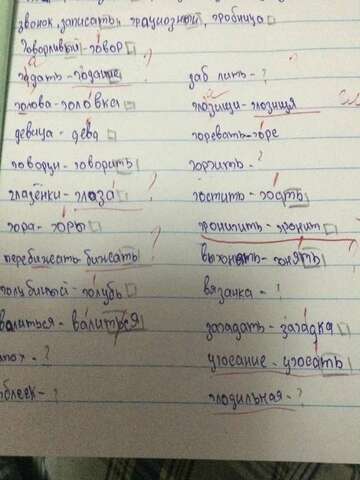 звонок, записать, грациозный, гробница
Говорливый - говор
гадать - гадание
голова - головка
девица - дева
говорци - говорить
глазёнки - глаза
гора - горы
перебижать бижать
голубиный - голубь
валиться - валиться
- ?
- ?
заб лить - ?
глозищи - глозища
горевать - горе
горжить - ?
гостить -
гронигить - гронит
выхонять - гонять
вязанка - ?
загадать - загадка
угосание - угосать
глодильная - ?